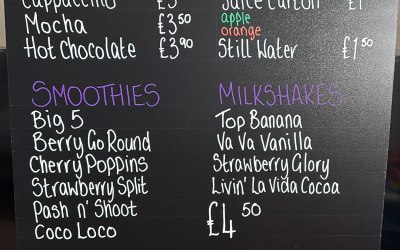 Cappuccino £3
Juice Carton £1
Mocha £3.50
apple
orange
Hot Chocolate £3.90
Still Water £1.50
SMOOTHIES
MILKSHAKES
Big 5
Top Banana
Berry Go Round
Va Va Vanilla
Cherry Poppins
Strawberry Glory
Strawberry Split
Livin' La Vida Cocoa
Pash n' Shoot
£4.50
Coco Loco